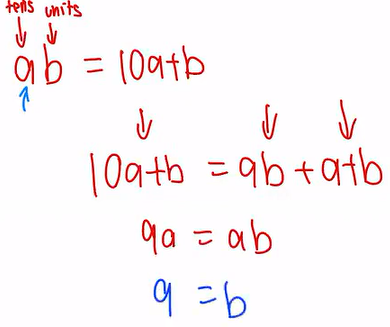 tens units
ab = 10a+b
10a+b = ab + a+b
9a = ab
9 = b